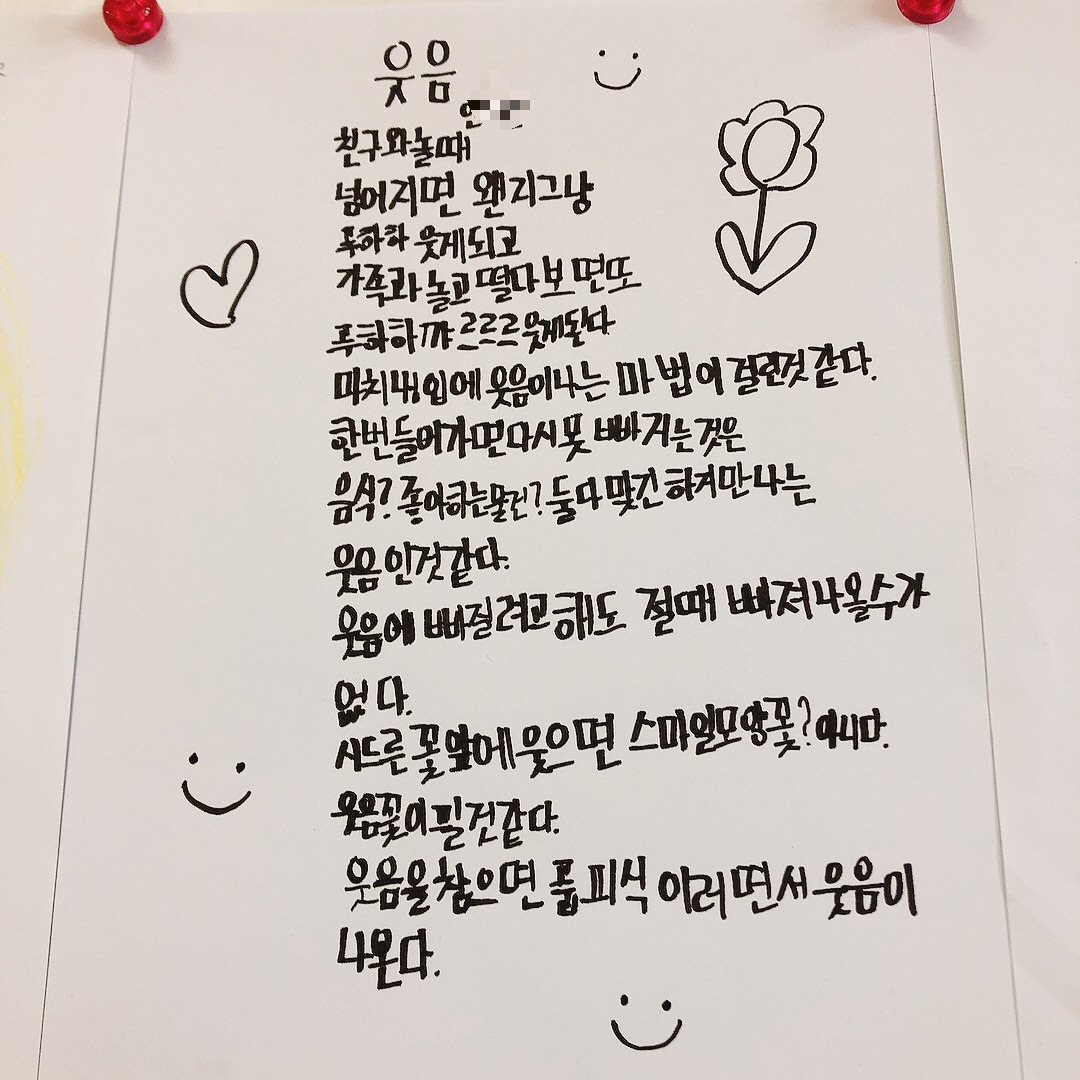 웃음
친구와놀때
넘어지면 왠지그냥
푸하하 웃게되고
가족과 놀고 떨다보면또
푸하하까르르르웃게된다
마치내입에 웃음이나는 마법이 걸린것 같다.
한번들어가면다시못 빠지는것은
음식? 좋아하는물건? 둘다 맞긴하겨만나는
웃음인것같다.
웃음에 빠질려고해도 절때 빠져나올수가
없다.
시드른꽃앞에웃으면 스마일모양꽃? 아니다.
웃음꽃이필것같다.
웃음을참으면 풉 피식 이러면서 웃음이
나온다.